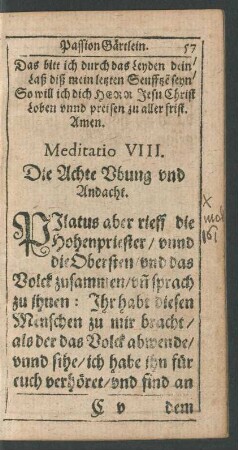 Passion Gärtlein. 57
Das bitt ich durch das Leyden dein/
Laß diß mein letzten Seufftzē seyn/
So will ich dich HERR Jesu Christ
Loben vnnd preisen zu aller frist.
Amen.
Meditatio VIII.
Die Achte Vbung vnd
Andacht.
PIlatus aber rieff die
Hohenpriester/ vnnd
die Obersten/ vnd das
Volck zusammen/ vñ sprach
zu ihnen: Ihr habt diesen
Menschen zu mir bracht/
als der das Volck abwende/
vnnd sihe/ ich habe ihn für
euch verhöret/ vnd find an
C v dem
x